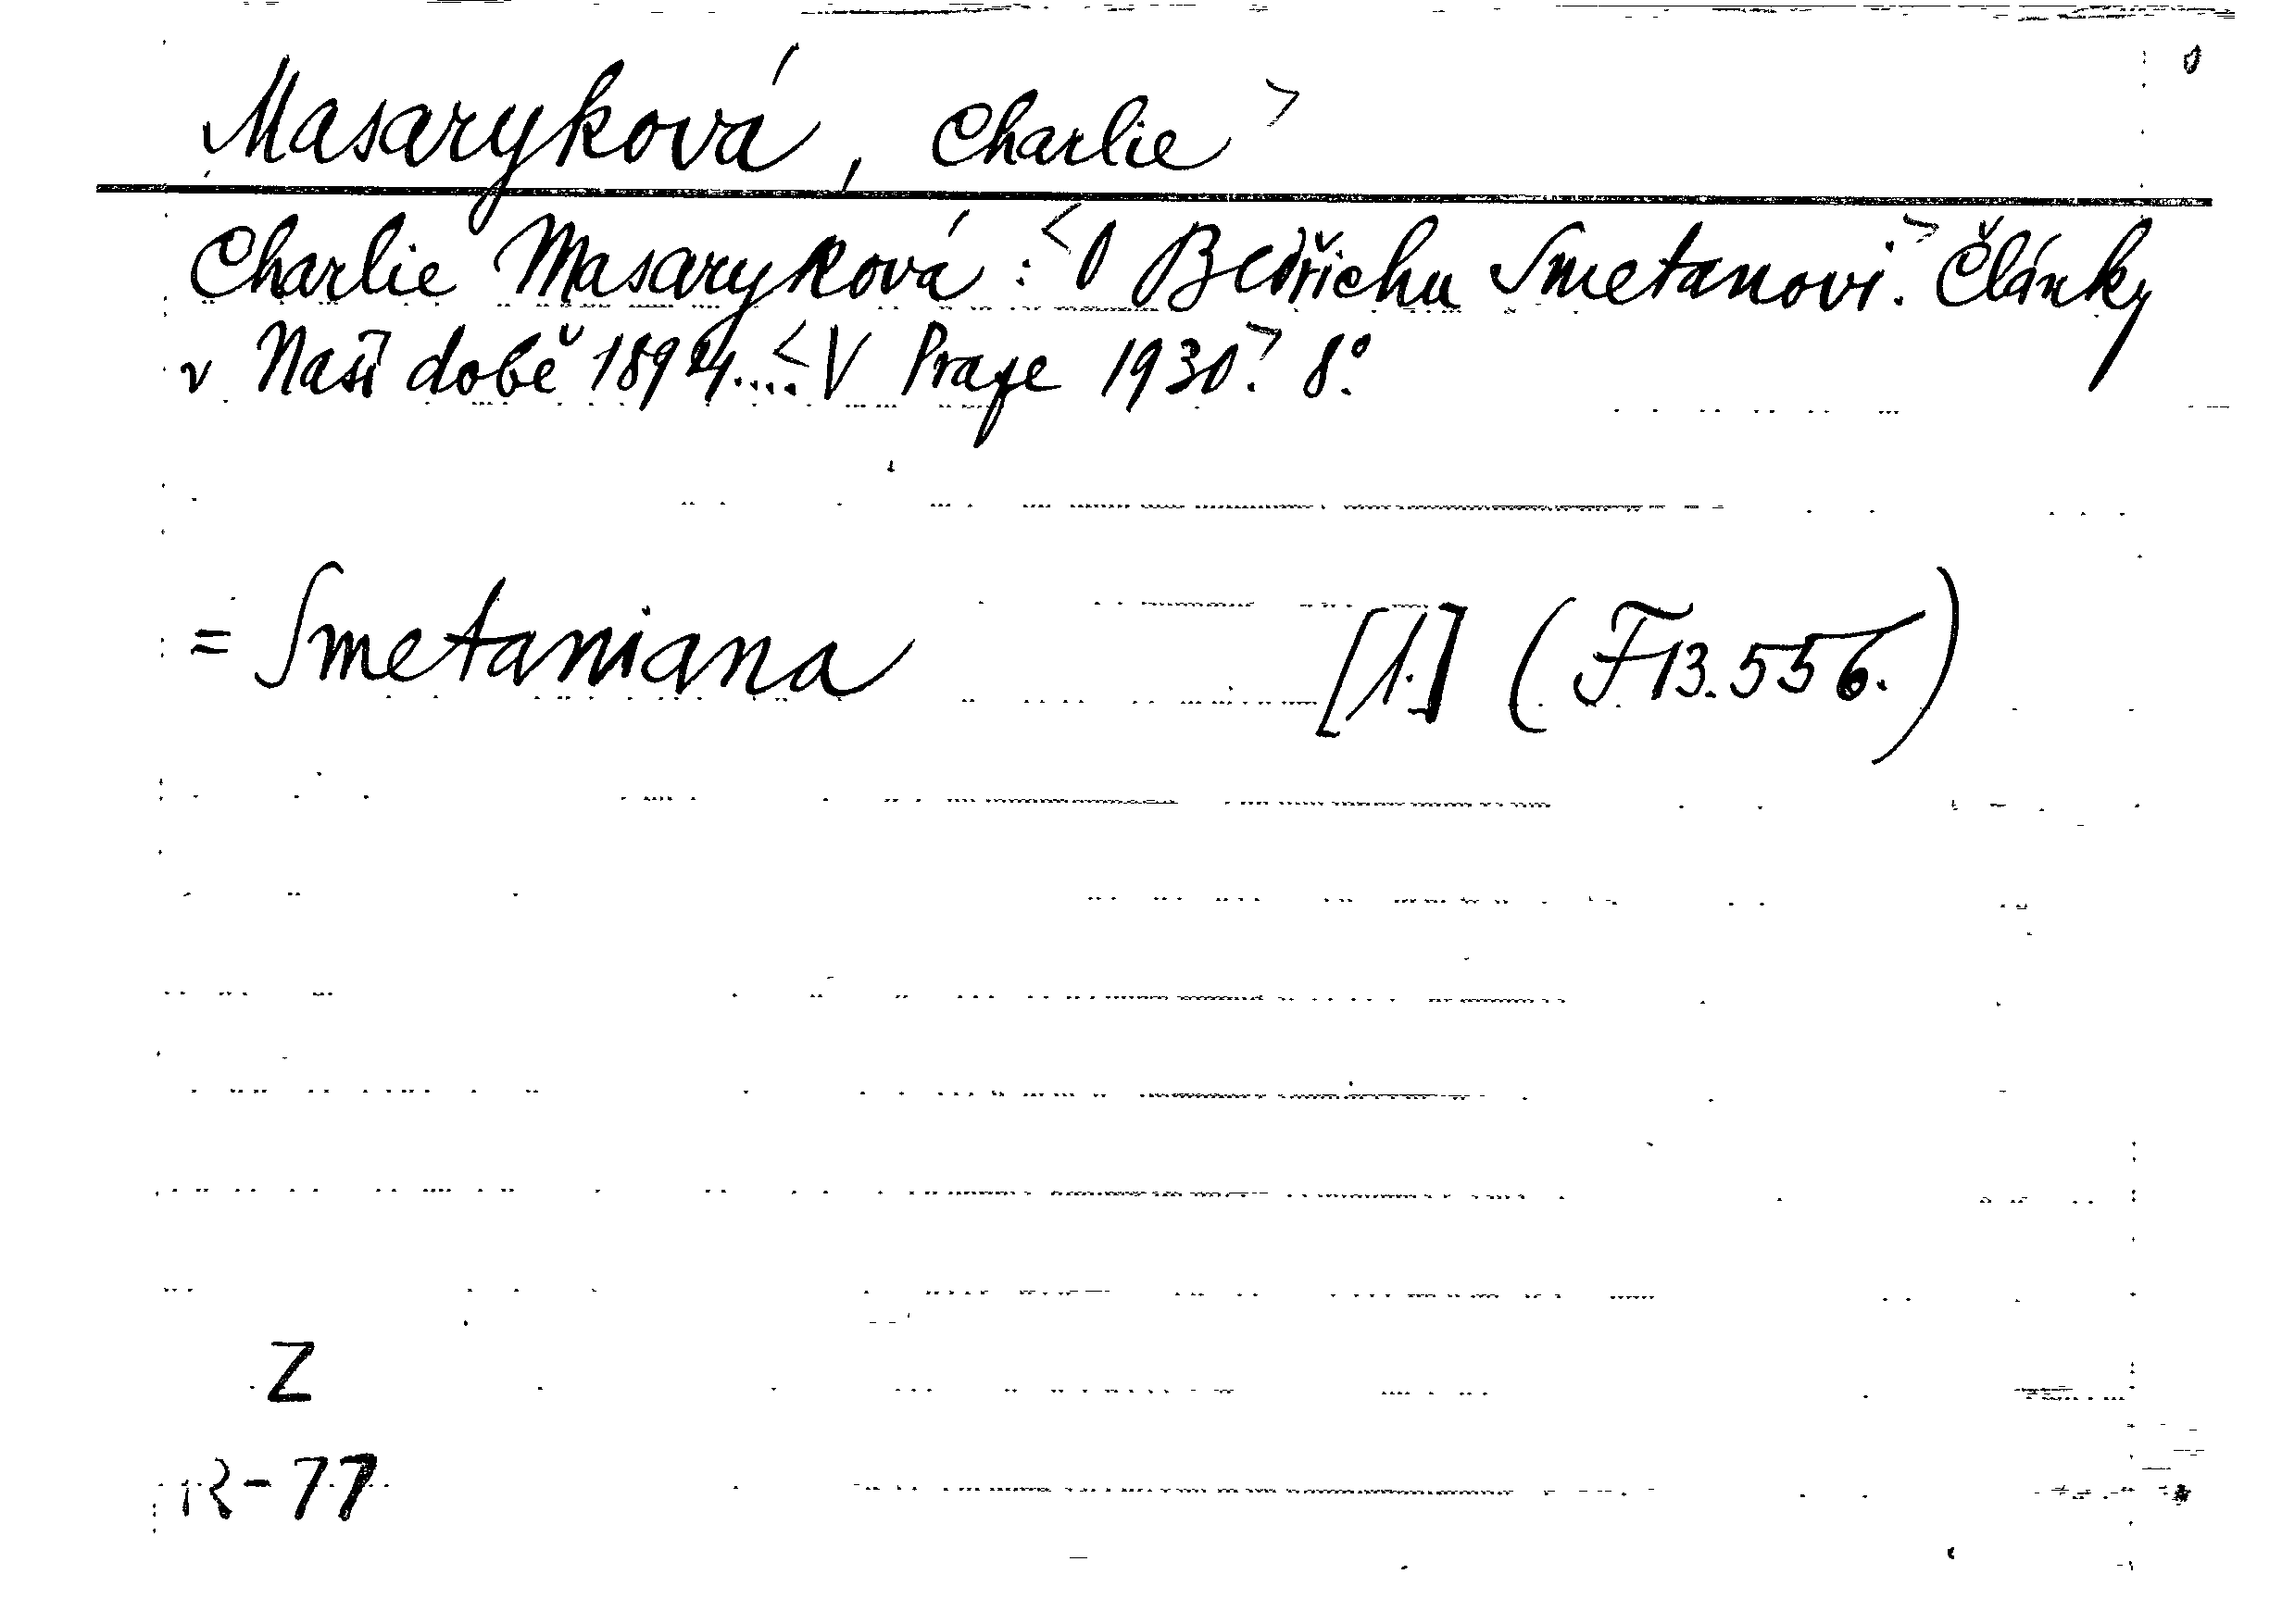 Masaryková, Charlie >
Charlie Masaryková: <O Bedřichu Smetanovi.> Články
v Naší době 1894.... <V Praze 1930.> 8°.
= Smetaniana [1.] (F13.556.)
Z
R-77